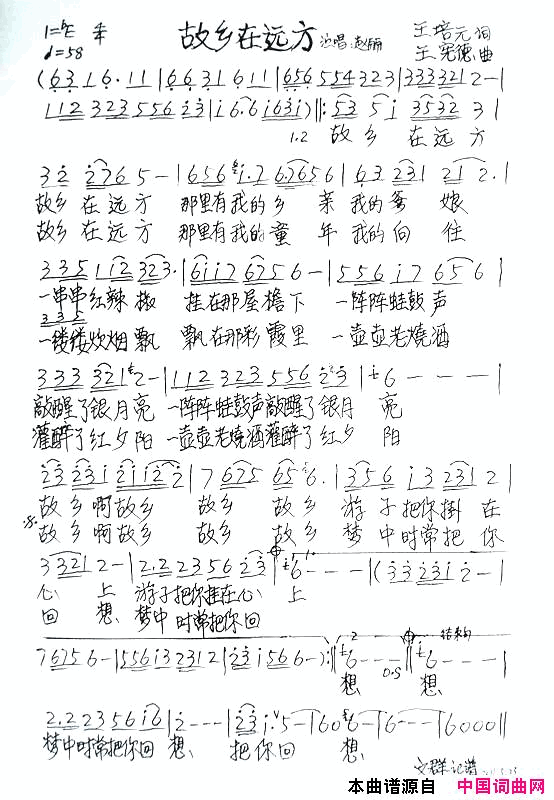 1=♭E 4/4 故乡在远方 演唱:赵丽 王培元 词
♩=58 王宪德 曲
(6 3 1 6· 1 1 | 6 6 3 1 6 1 1 | 6 5 6 5 5 4 3 2 3 | 3 3 3 3 2 1 2 - |
1 1 2 3 2 3 5 5 6 2 3 | i 6· 6 i 6 3 i) ‖: 5 3 5 i 3 5 3 2 3 |
1.2 故乡 在远方
3 2 2 7 6 5 - | 6 5 6 i· 7 6· 7 6 5 6 | 6 3 2 3 1 2 1 2· |
故乡 在远方 那里有我的乡 亲 我的爹 娘
故乡 在远方 那里有我的童 年 我的向 往
3 3 5 1 i 2 3 2 3· | 6 i i 7 6 7 5 6 - | 5 5 6 i 7 6 5 6 |
一串串红辣 椒 挂在那屋檐下 一阵阵蛙鼓声
3 3 5
一缕缕炊烟飘 飘在那彩霞里 一壶壶老烧酒
3 3 3 3 2 1 2 - | 1 1 2 3 2 3 5 5 6 2 3 | 6 - - - |
敲醒了银月亮 一阵阵蛙鼓声敲醒了银月 亮
灌醉了红夕阳 一壶壶老烧酒灌醉了红夕 阳
2 3 2 3 i 2 i i 2 2 | 7 6 7 5 6 5 6· | 3 5 6 i 3 2 3 1 2 |
故乡啊故乡 故乡 故乡 游子把你掛在
故乡啊故乡 故乡 故乡 梦中时常把你
3 3 2 1 2 - | 2· 2 2 3 5 6 2 3 | 6 - - - | (3 3 2 3 i 2 - |
心 上 游子把你挂在心 上
回 想 梦中时常把你回
7 6 7 5 6 - | 5 5 6 i 3 2 3 1 2 | 2 3 i 5 6 6 -) :‖ 2 6 - - - D.S ‖ 结构 6 - - - |
想 想
2· 2 2 3 5 6 i 6 | 2 - - - | 2 3 i· 5 - | 6 0 6 - | 6 - - - | 6 0 0 0 ‖
梦中时常把你回 想 把你回 想
文群记谱
本曲谱源自 中国词曲网